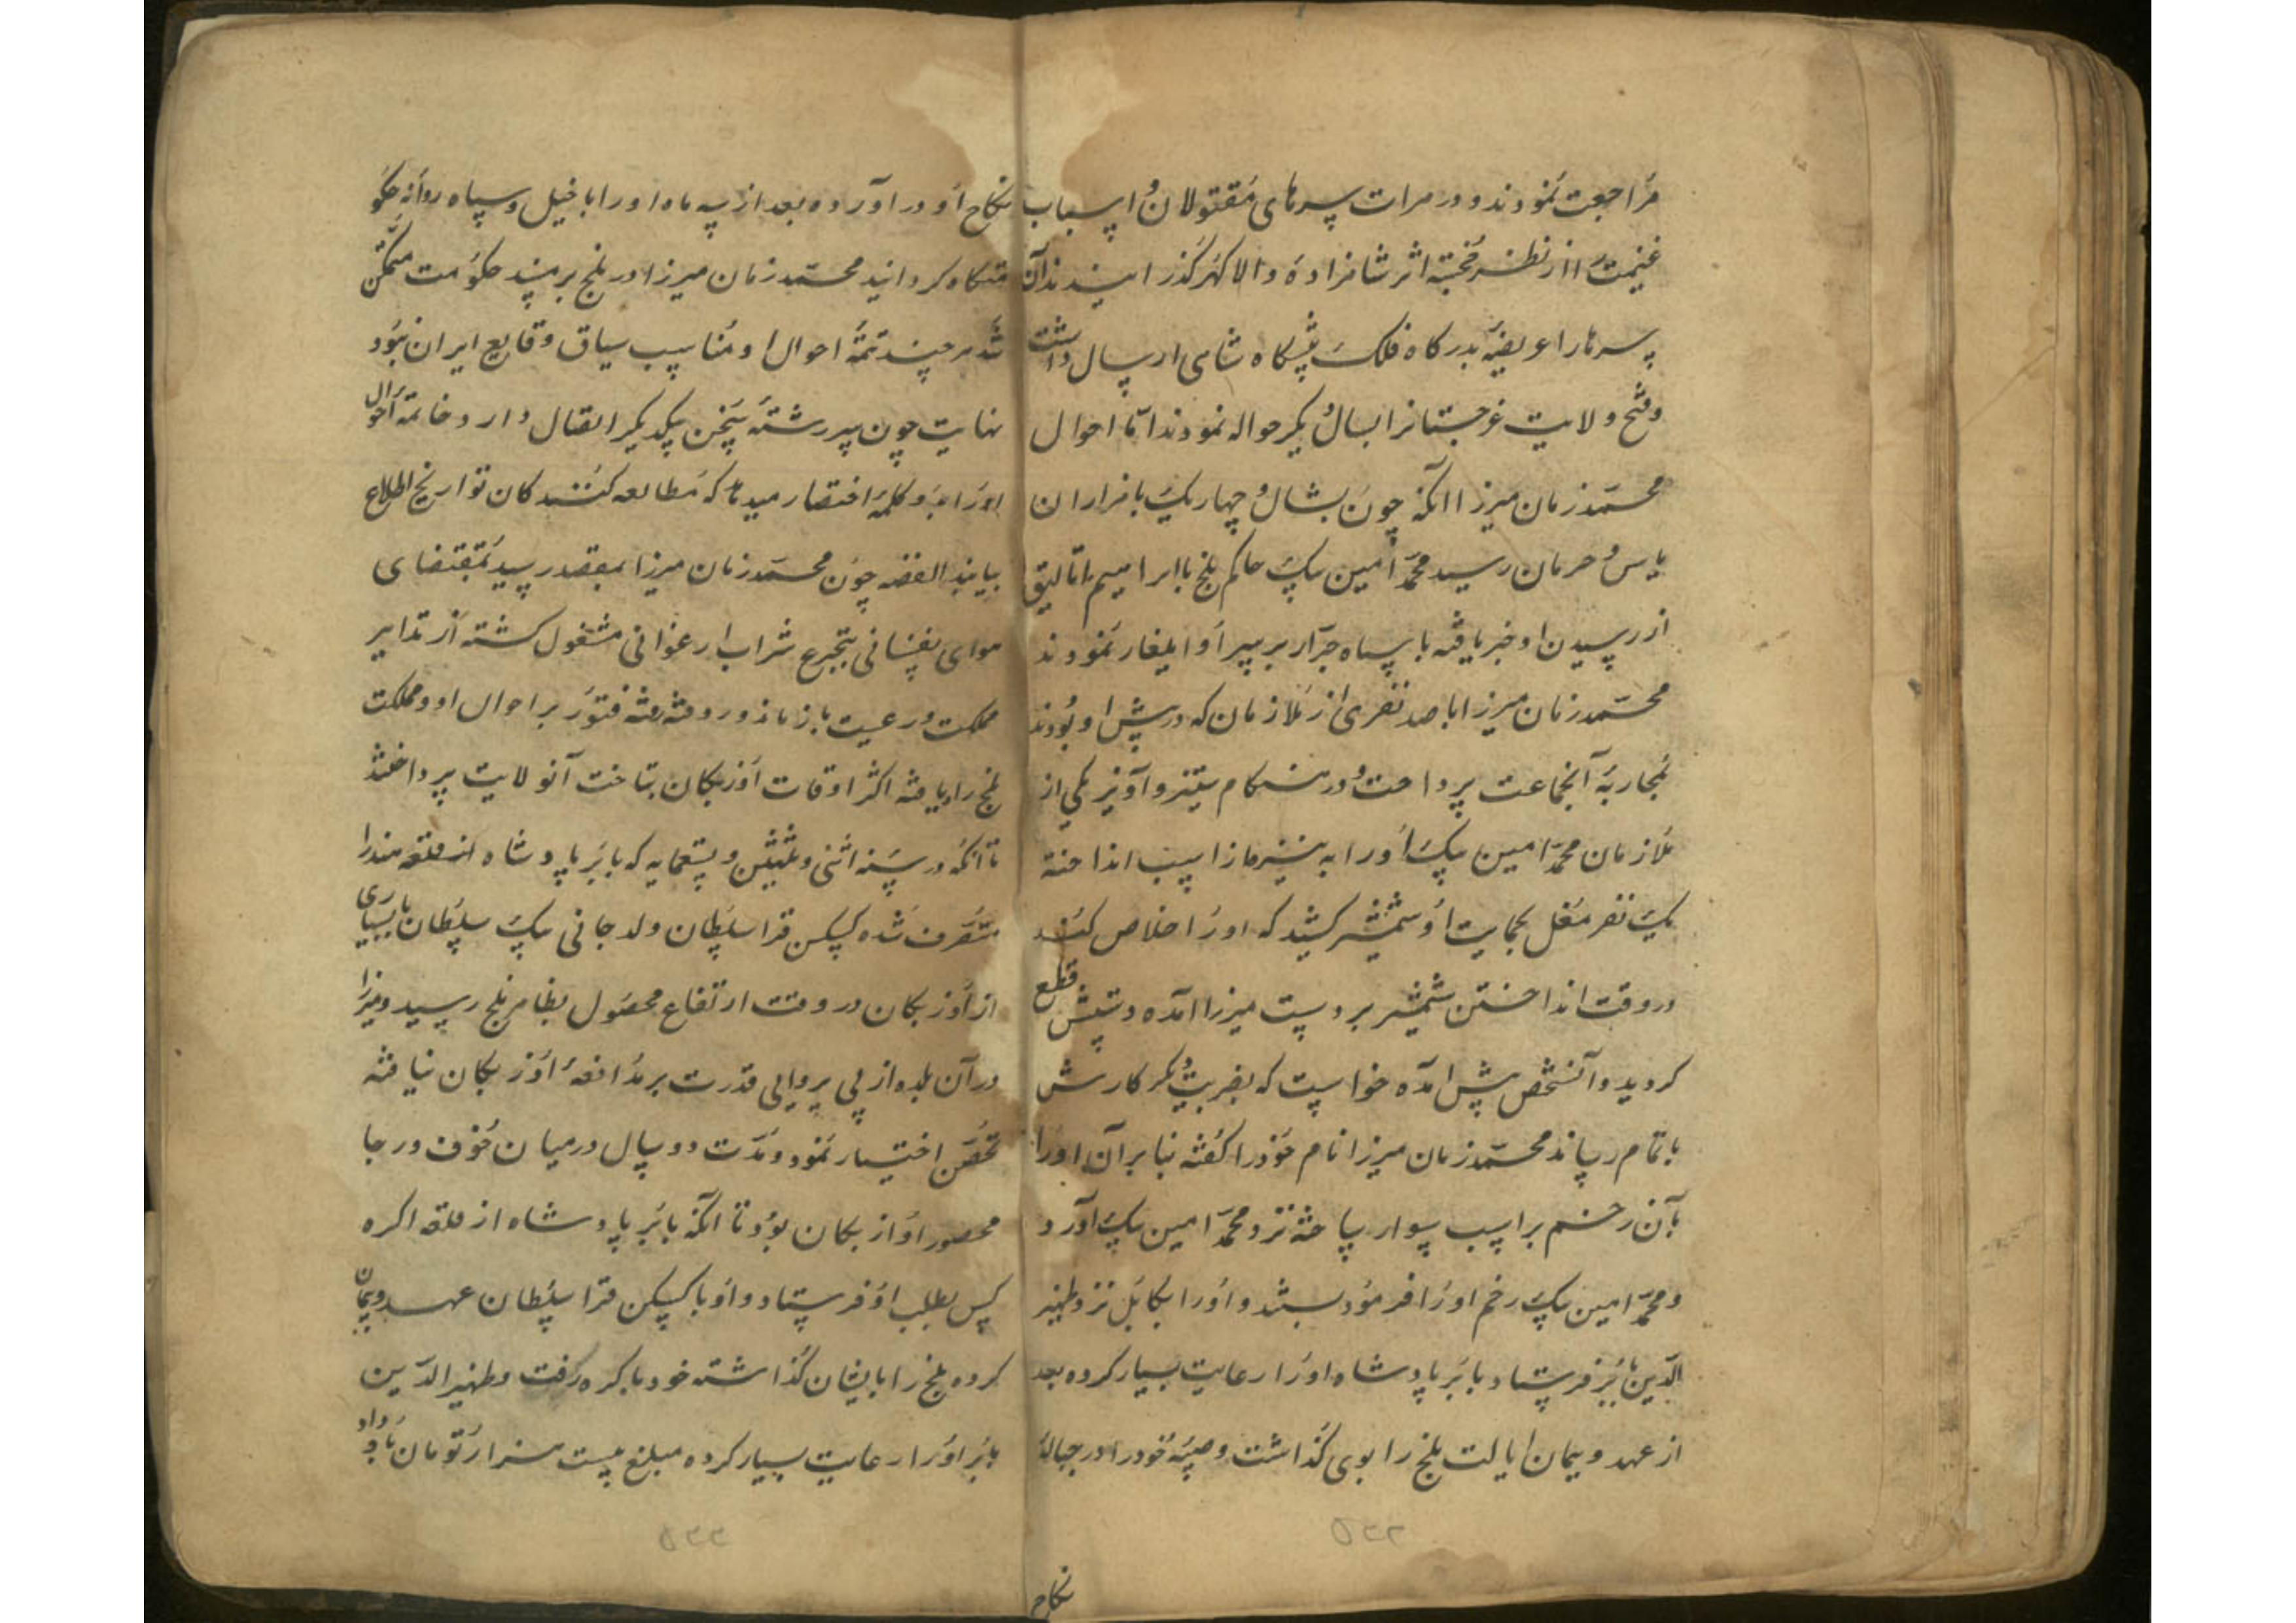 مراجعت نمودند و در مرات سرهای مقتولان و اسباب
غنیمت را از نظر خجسته اثر شاهزاده والا گهر گذرانیدند آن
سرها را عریضه بدرگاه فلک پیشگاه شاهی ارسال داشت
و فتح ولایت غرجستانرا بسال دیگر حواله نمودند اما احوال
محمد زمان میرزا آنکه چون بشال و چهاریک با هزاران
یاس و حرمان رسید محمد امین بیک حاکم بلخ با ابراهیم اتالیق
از رسیدن او خبر یافته با سپاه جرار بر سر او ایلغار نمودند
محمد زمان میرزا با صد نفری از ملازمان که در پیش او بودند
بمحاربه آنجماعت پرداخت و در هنگام ستیز و آویز یکی از
ملازمان محمد امین بیک او را به نیزه از اسب انداخته
یک نفر مغل بحمایت او شمشیر کشید که او را خلاص کند
در وقت انداختن شمشیر بر دست میرزا آمده دستش قطع
گردید و آنشخص پیش آمده خواست که بضربت دیگر کارش
باتمام رساند محمد زمان میرزا نام خود را گفته بنا بر آن او را
بآن زخم بر اسب سوار ساخته نزد محمد امین بیک آورد
و محمد امین بیک زخم او را فرمود بستند و او را بکابل نزد ظهیر
الدین بابر فرستاد بابر پادشاه او را رعایت بسیار کرده بعد
از عهد و پیمان ایالت بلخ را بوی گذاشت و صبیه خود را در حباله
۵۲۲
نکاح
نکاح او در آورده بعد از سه ماه او را با خیل و سپاه روانه حکو
متگاه گردانید محمد زمان میرزا در بلخ بر مسند حکومت متمکن
شد هر چند تتمه احوال او مناسب سیاق وقایع ایران نبود
نهایت چون سر رشته سخن بیکدیگر اتصال دارد خاتمه احوال
او را بدو کلمه اختصار مینماید که مطالعه کنندگان تواریخ اطلاع
بیابند القصه چون محمد زمان میرزا بمقصد رسید بمقتضای
هوای نفسانی بتجرع شراب ارغوانی مشغول گشته از تدابیر
مملکت و رعیت باز ماند و رفته رفته فتور بر احوال او و مملکت
بلخ راه یافته اکثر اوقات اوزبکان بتاخت آنولایت پرداختند
تا آنکه در سنه اثنی و ثلثین و تسعمایه که بابر پادشاه از قلعه هند را
متصرف شده کسکن قرا سلطان ولد جانی بیک سلطان با بسیاری
از اوزبکان در وقت ارتفاع محصول بظاهر بلخ رسید و میرزا
در آن بلده از بی پروایی قدرت بر مدافعه اوزبکان نیافته
تحصن اختیار نمود و مدت دو سال در میان خوف و رجا
محصور اوزبکان بود تا آنکه بابر پادشاه از قلعه اکره
کس بطلب او فرستاد و او با کسکن قرا سلطان عهد و پیمان
کرده بلخ را بایشان گذاشته خود باکره رفت و ظهیر الدین
بابر او را رعایت بسیار کرده مبلغ بیست هزار تومان باو داد
۵۲۳